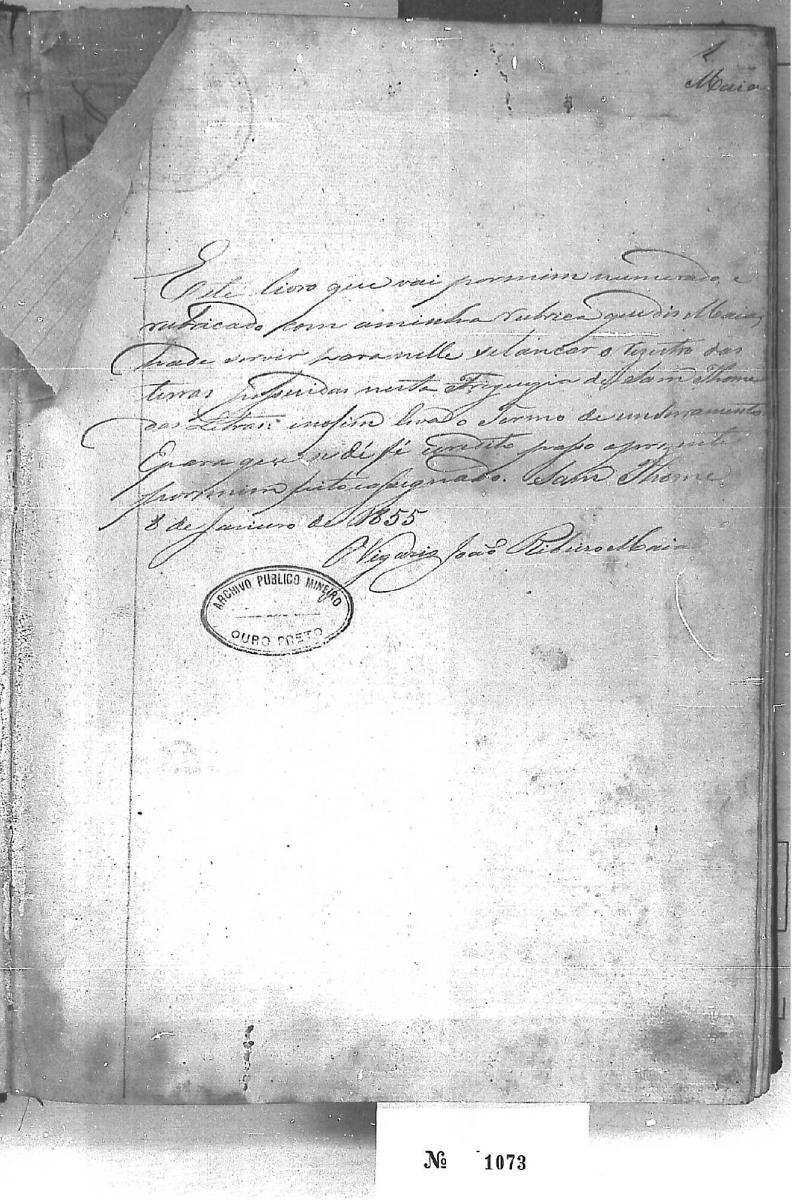 1
Maia
Este livro que vai por mim numerado, e
rubricado com aminha rubrica que dis Maia,
hade servir paranelle selancar o registro das
terras possuidas nesta Freguezia de Sam Thome
das Letras: enofim leva o Termo de enserramento
Epara que dé fé conste passo apresente
por mim feito eassignado. Sam Thome
8 de Janeiro de 1855
O Vigario João Ribeiro Maia
ARCHIVO PUBLICO MINEIRO
OURO PRETO
Nº 1073